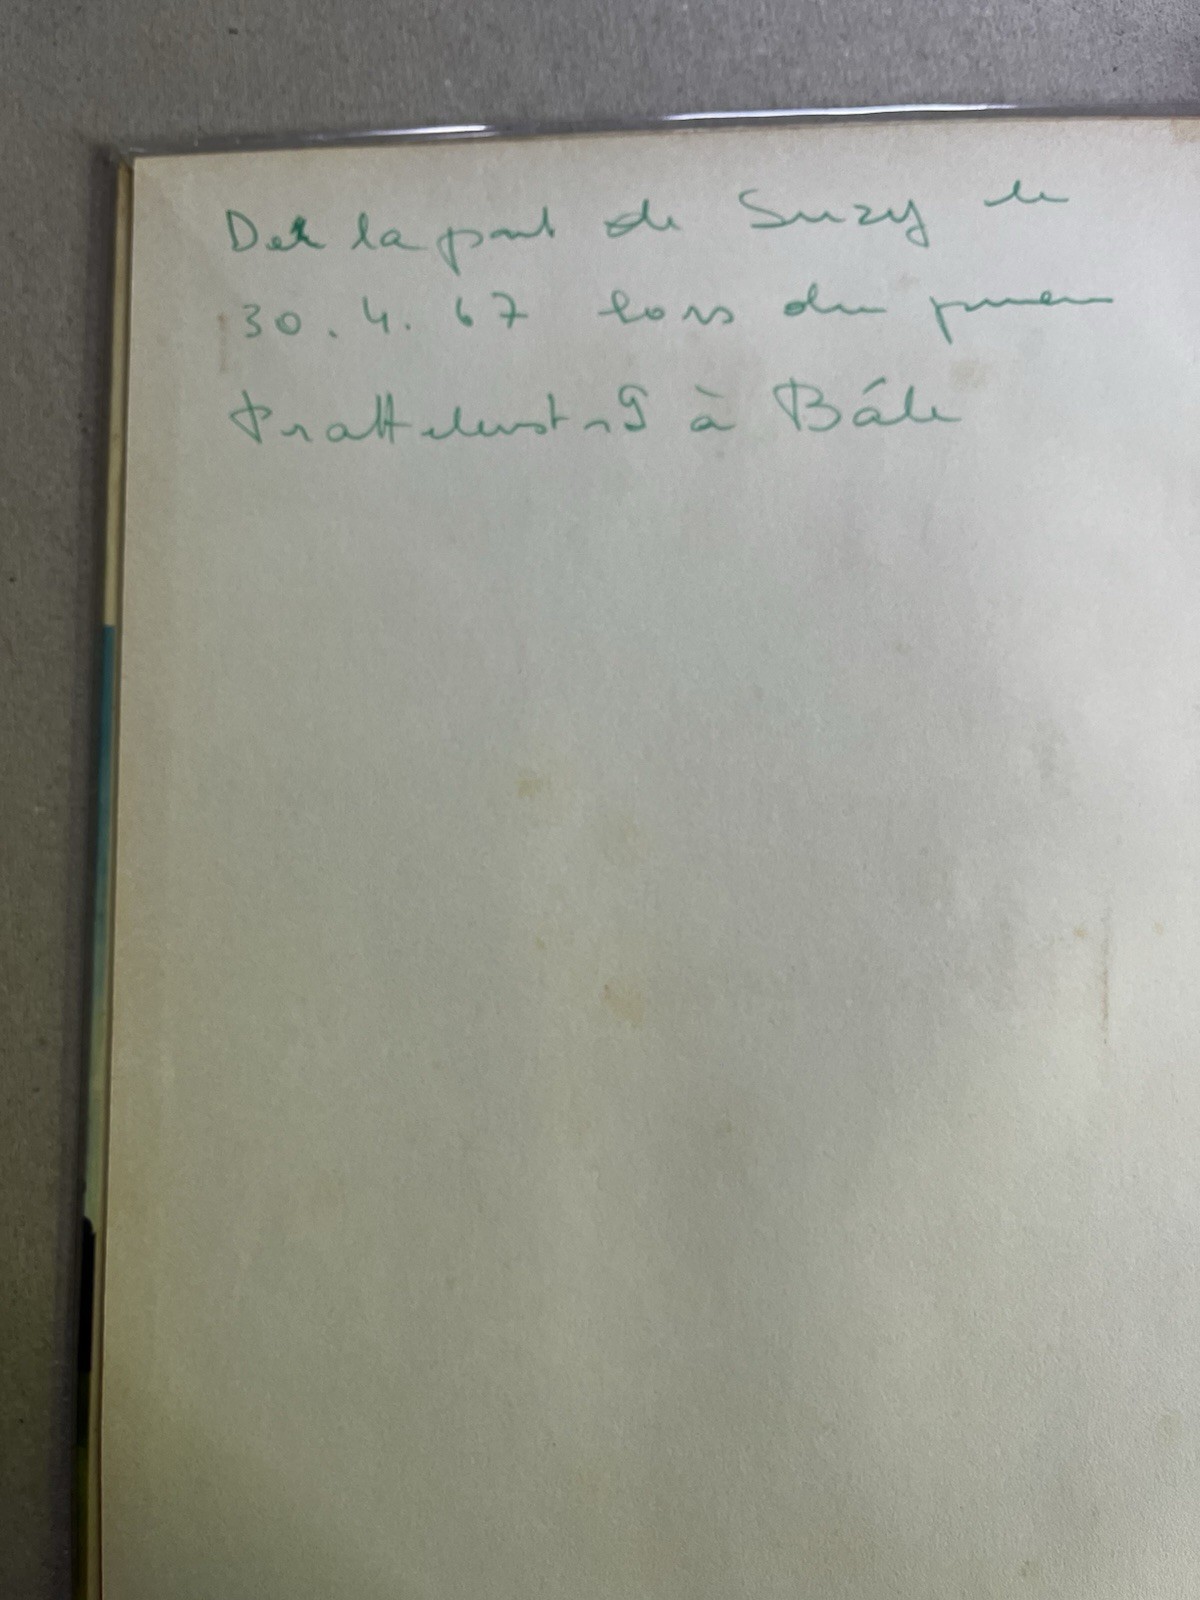 De la part de Suzy le
30.4.67 lors du
à Bâle